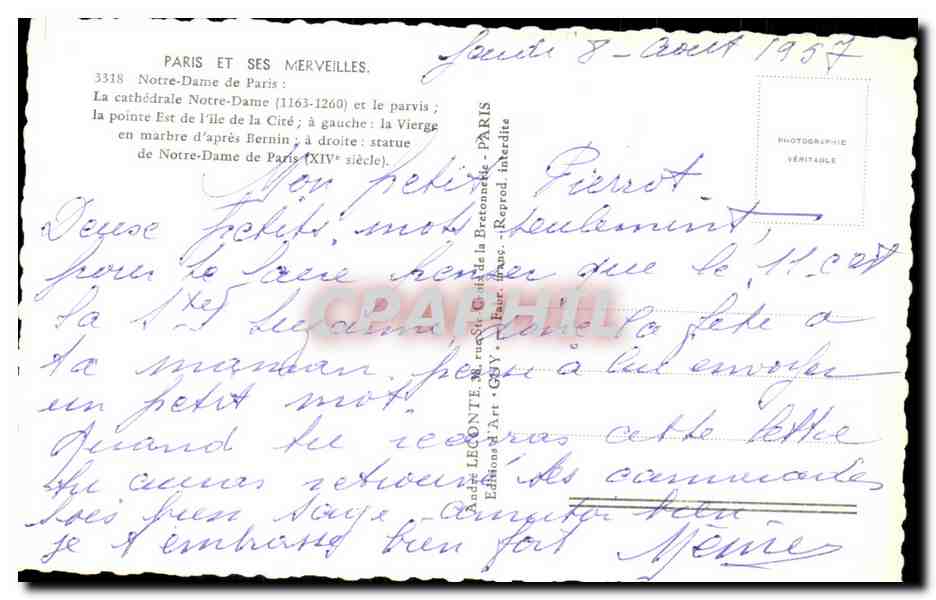 Jeudi 8 - Aout 1957
PARIS ET SES MERVEILLES.
3318 Notre-Dame de Paris :
La cathédrale Notre-Dame (1163-1260) et le parvis ;
la pointe Est de l'île de la Cité ; à gauche : la Vierge
en marbre d'après Bernin ; à droite : statue
de Notre-Dame de Paris (XIVe siècle).
PHOTOGRAPHIE
VÉRITABLE
Mon petit Pierrot
Deux petits mots seulement,
pour te faire penser que le 11 c'est
la Ste Suzanne, donc la fête a
ta maman, pense a lui envoyer
un petit mot.
Quand tu recevras cette lettre
tu auras retrouvé tes camarades
sois bien sage amuse toi bien
je t'embrasse bien fort Mémé
André LECONTE, 38, rue Ste-Croix de la Bretonnerie - PARIS
Editions d'Art "GUY" - Fabr. franç. - Reprod. interdite
CPAPHIL